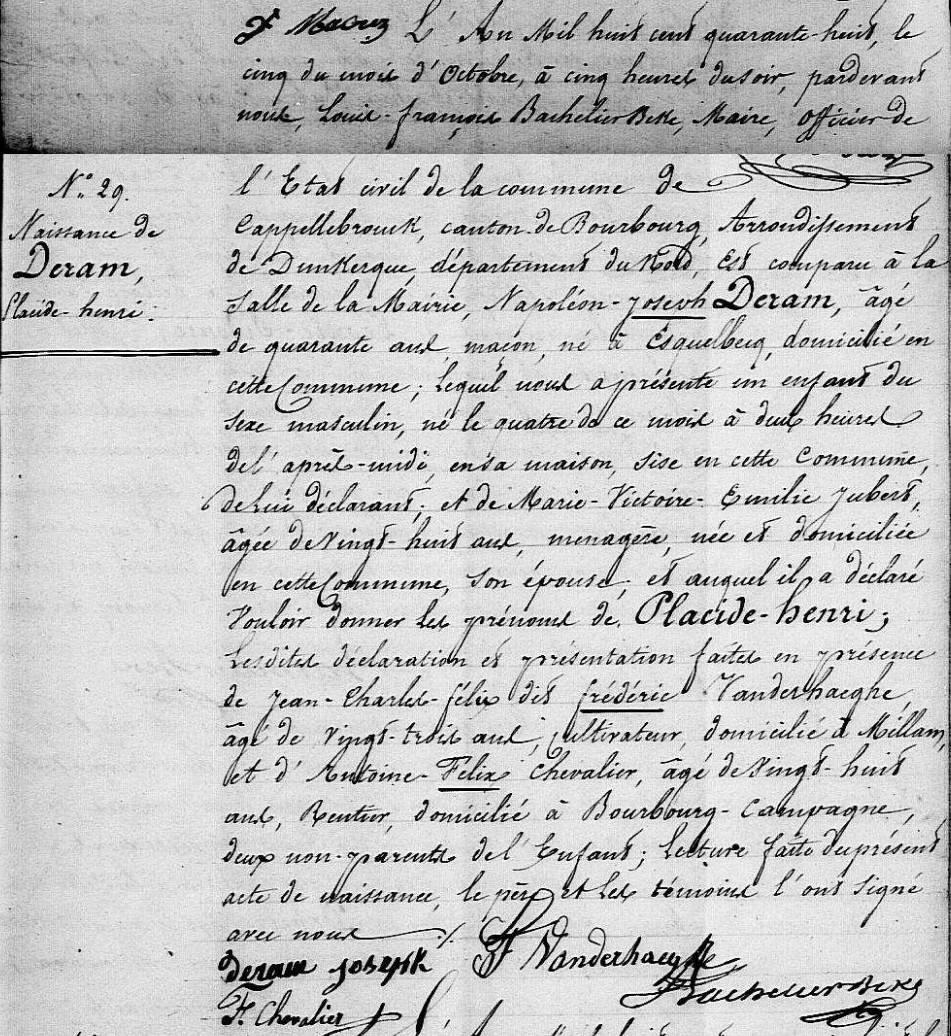 L'An Mil huit cent quarante-huit, le
cinq du mois d'Octobre, à cinq heures du soir, pardevant
nous, Louis-françois Bachelier Beke, Maire, officier de
N.° 29.
Naissance de
Deram,
Placide-henri.
l'Etat civil de la commune de
Cappellebrouck, canton de Bourbourg, Arrondissement
de Dunkerque, département du Nord, Est comparu à la
Salle de la Mairie, Napoléon-joseph Deram, âgé
de quarante ans, maçon, né à Esquelbecq, domicilié en
cette Commune; Lequel nous a présenté un enfant du
sexe masculin, né le quatre de ce mois à deux heures
de l'après-midi, en sa maison, sise en cette Commune,
de Lui déclarant; et de Marie-Victoire-Emilie Jubert,
âgée de Vingt-huit ans, menagère, née et domiciliée
en cette Commune, son épouse; et auquel il a déclaré
Vouloir donner les prénoms de Placide-henri;
Lesdites déclaration et présentation faites en présence
de Jean-Charles-félix dit frédéric Vanderhaeghe,
âgé de vingt-trois ans, cultivateur, domicilié à Millam,
et d'Antoine-Felix Chevalier, âgé de Vingt-huit
ans, Rentier, domicilié à Bourbourg-Campagne,
deux non-parents de l'Enfant; lecture faite du présent
acte de naissance, le père et les témoins l'ont signé
avec nous ./.
Deram joseph F Vanderhaeghe
Bachelier Beke
F. Chevalier